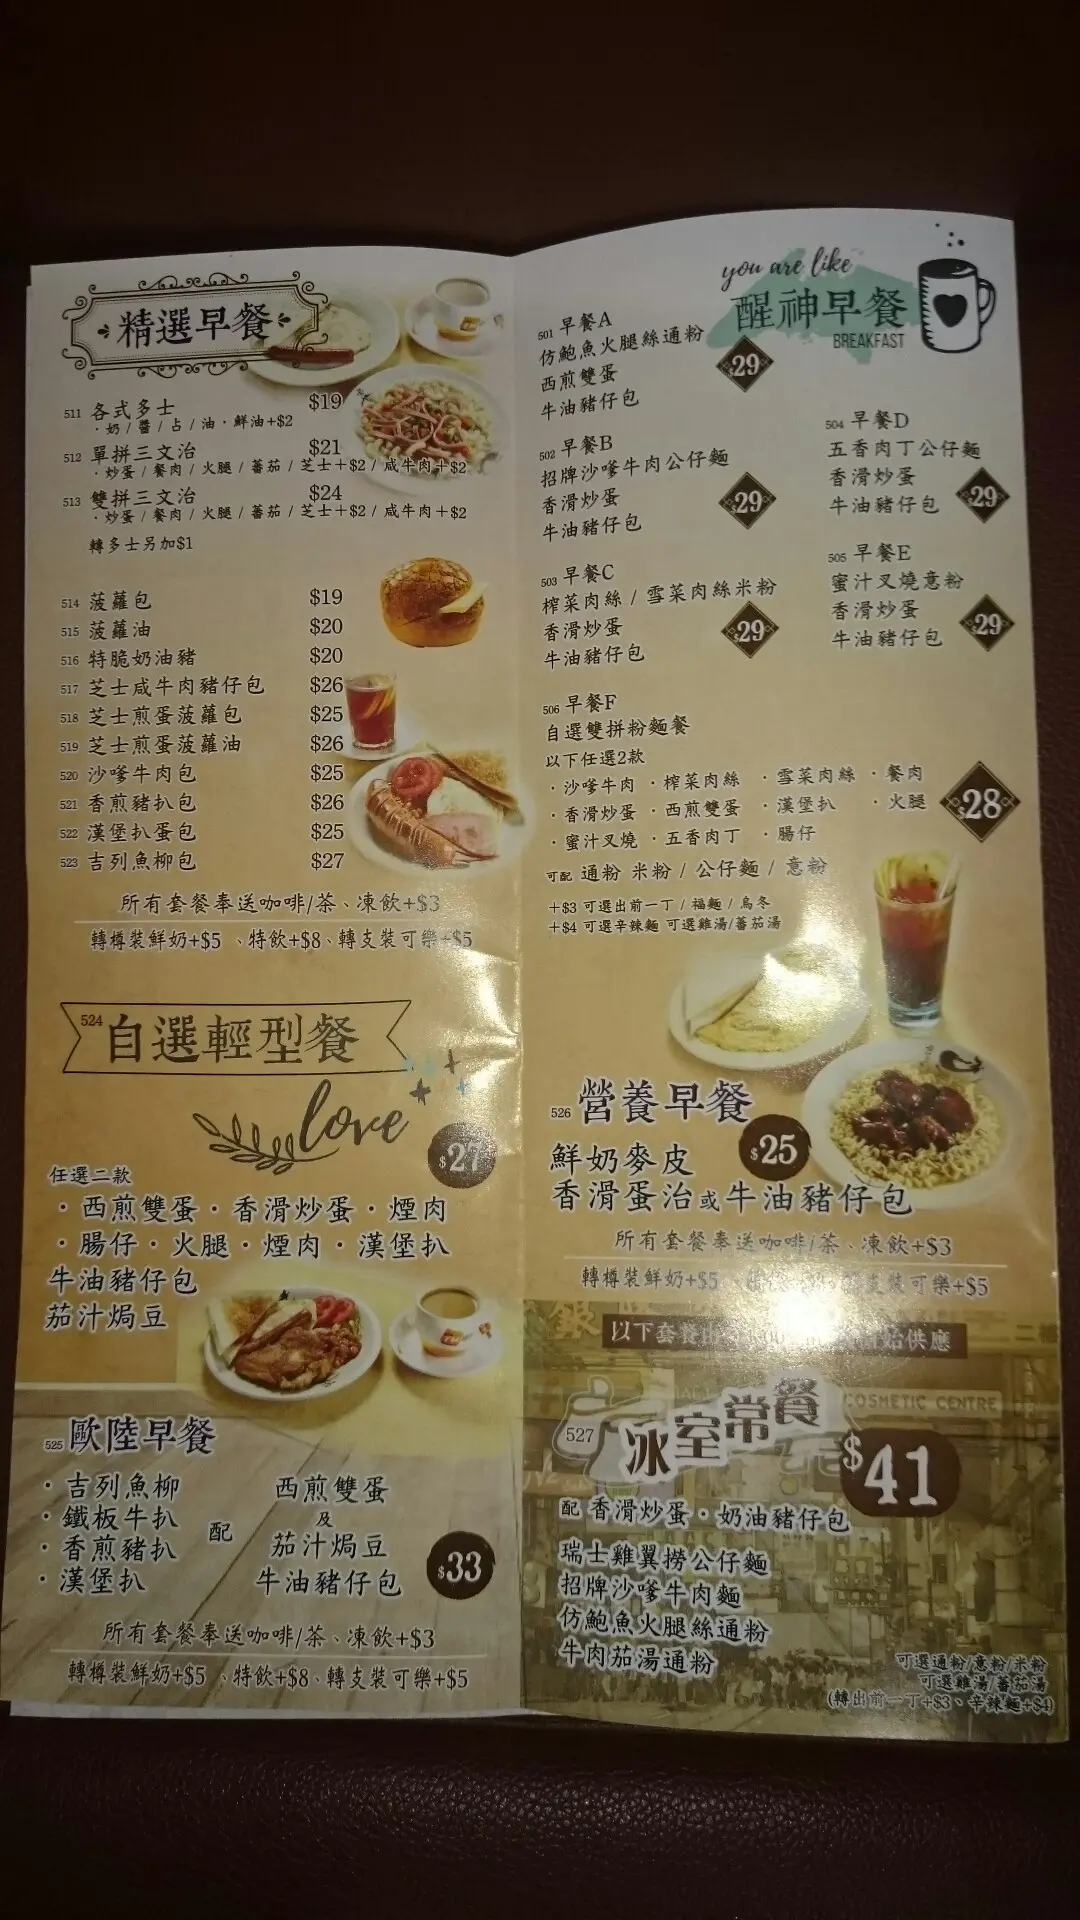 精選早餐
511 各式多士 $19
·奶/醬/占/油·鮮油+$2
512 單拼三文治 $21
·炒蛋/餐肉/火腿/蕃茄/芝士+$2/咸牛肉+$2
513 雙拼三文治 $24
·炒蛋/餐肉/火腿/蕃茄/芝士+$2/咸牛肉+$2
轉多士另加$1
514 菠蘿包 $19
515 菠蘿油 $20
516 特脆奶油豬 $20
517 芝士咸牛肉豬仔包 $26
518 芝士煎蛋菠蘿包 $25
519 芝士煎蛋菠蘿油 $26
520 沙嗲牛肉包 $25
521 香煎豬扒包 $26
522 漢堡扒蛋包 $25
523 吉列魚柳包 $27
所有套餐奉送咖啡/茶、凍飲+$3
轉樽裝鮮奶+$5、特飲+$8、轉支裝可樂+$5
524 自選輕型餐
love
$27
任選二款
·西煎雙蛋·香滑炒蛋·煙肉
·腸仔·火腿·煙肉·漢堡扒
牛油豬仔包
茄汁焗豆
525 歐陸早餐
·吉列魚柳
·鐵板牛扒
·香煎豬扒
·漢堡扒
配
西煎雙蛋
及
茄汁焗豆
牛油豬仔包
$33
所有套餐奉送咖啡/茶、凍飲+$3
轉樽裝鮮奶+$5、特飲+$8、轉支裝可樂+$5
you are like
醒神早餐
BREAKFAST
501 早餐A
仿鮑魚火腿絲通粉
西煎雙蛋
牛油豬仔包
$29
502 早餐B
招牌沙嗲牛肉公仔麵
香滑炒蛋
牛油豬仔包
$29
503 早餐C
榨菜肉絲/雪菜肉絲米粉
香滑炒蛋
牛油豬仔包
$29
504 早餐D
五香肉丁公仔麵
香滑炒蛋
牛油豬仔包
$29
505 早餐E
蜜汁叉燒意粉
香滑炒蛋
牛油豬仔包
$29
506 早餐F
自選雙拼粉麵餐
以下任選2款
·沙嗲牛肉 ·榨菜肉絲 ·雪菜肉絲 ·餐肉
·香滑炒蛋 ·西煎雙蛋 ·漢堡扒 ·火腿
·蜜汁叉燒 ·五香肉丁 ·腸仔
$28
可配 通粉 米粉/公仔麵/意粉
+$3 可選出前一丁/福麵/烏冬
+$4 可選辛辣麵 可選雞湯/蕃茄湯
526 營養早餐
$25
鮮奶麥皮
香滑蛋治或牛油豬仔包
所有套餐奉送咖啡/茶、凍飲+$3
轉樽裝鮮奶+$5、支裝可樂+$5
以下套餐由 開始供應
COSMETIC CENTRE
527 冰室常餐
$41
配 香滑炒蛋·奶油豬仔包
瑞士雞翼撈公仔麵
招牌沙嗲牛肉麵
仿鮑魚火腿絲通粉
牛肉茄湯通粉
可選通粉/意粉/米粉
可選雞湯/蕃茄湯
(轉出前一丁+$3、辛辣麵+$4)